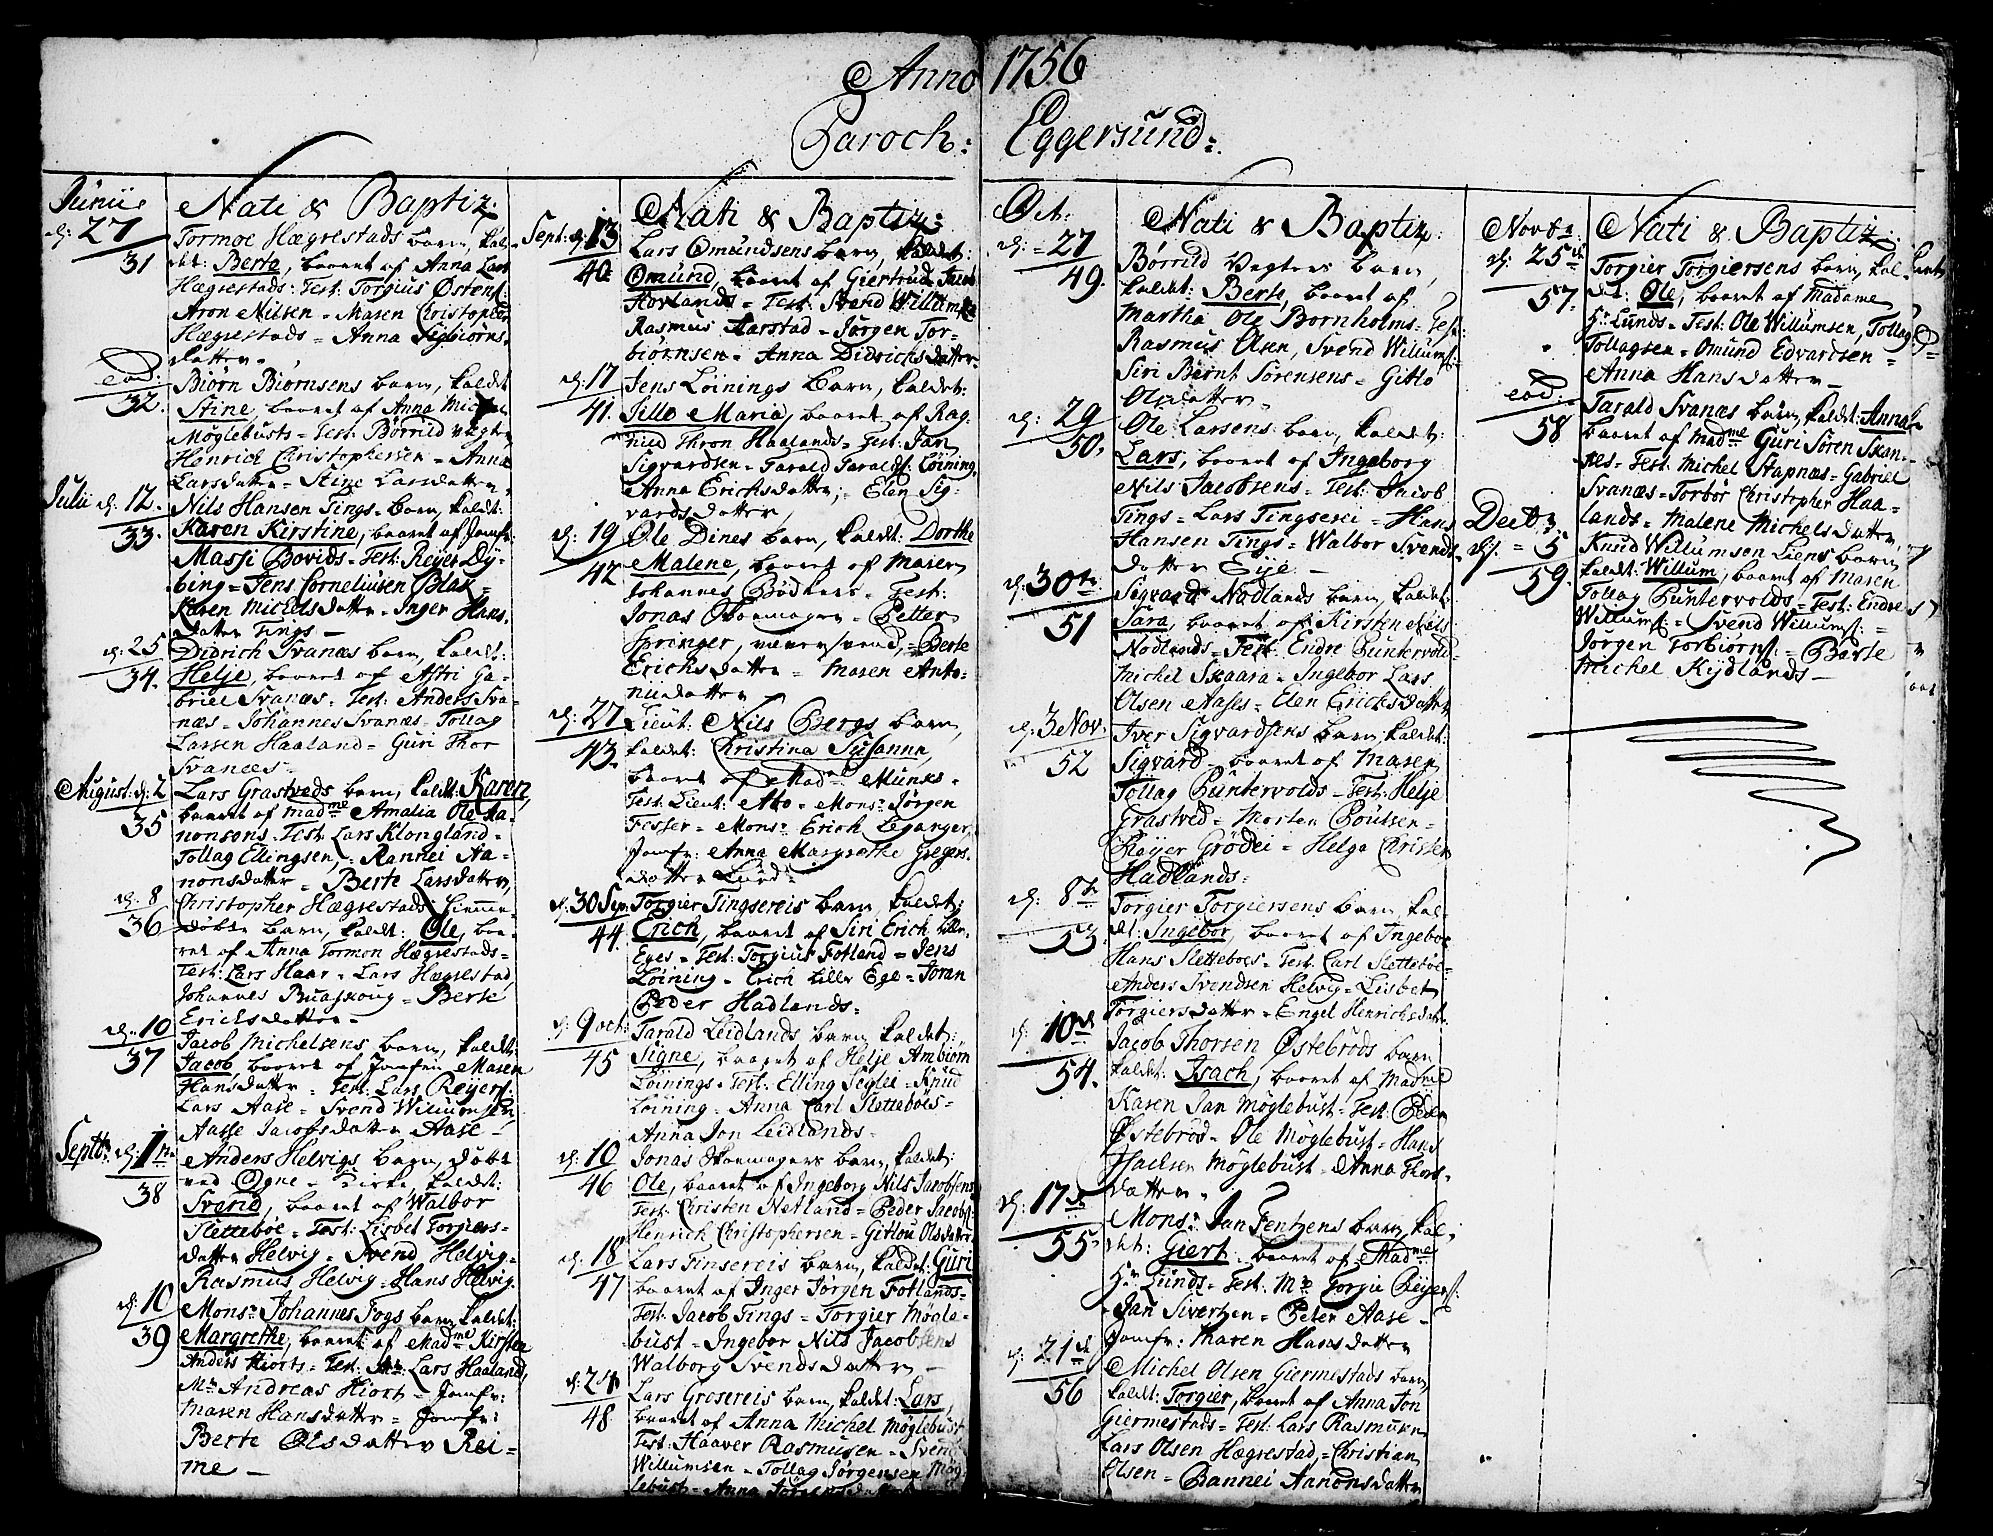 Anno 1756
Paroch: Eggersund:
Junii
d: 27
31
Nati & Baptiz:
Tormoe Hægrestads barn, kal-
det: Berte, baaret af Anna Lars
Hægrestads: Test: Torgius Østens:
Aron Nilsen = Maren Christopher
Hægrestads = Anna Sigbiørns-
datter.
eod:
32.
Biørn Biørnsens barn, kaldet
Stine, baaret af Anna Michel
Møglebusts = Test: Børrild Vegter
Henrich Christophersen = Anna
Larsdatter = Stine Larsdatter.
Julii d: 12.
33.
Nils Hansen Tings = barn, kaldet:
Karen Kirstine, baaret af Jomfr:
Massji Bovids = Test: Reijer Dy-
bing = Jens Corneliusen Blax =
Karen Michelsdatter = Inger Hans-
datter Tings –
d: 25
34.
Didrich Svanæs barn, kaldt:
Helje, baaret af Astri Ga-
briel Svanæs = Test: Anders Sva-
næs = Johannes Svanæs = Tollag
Larsen Haaland = Guri Thor
Svanæs =
August: d: 2
35
Lars Grastveds barn, kaldt: Karen,
baaret af Madme Amalia Ole Aa-
nonsøns Test: Lars Klongland =
Tollag Ellingsen, = Rannei Aa-
nonsdatter = Berte Larsdatter,
d: 8
36
Christopher Hægrestads hiemme-
døbte barn, kaldt: Ole, baa-
ret af Anna Tormon Hægrestads =
Test: Lars Haar = Lars Hægrestad
Johannes Buasskoug = Berte
Erichsdatter =
d: 10
37
Jacob Michelsens barn, kaldet:
Jacob, baaret af Jomfru Maren
Hansdatter = Test: Lars Reijers:
Lars Aase = Svend Willumsen,
Aasse Jacobsdatter Aase –
Septbr: d: 1ste
38
Anders Helvigs barn, døbt
ved Ogne = Kirke, kaldet:
Svend, baaret af Walbor
Slettebøe = Test: Lisbet Torgiers-
datter Helvig = Svend Helvig =
Rasmus Helvig = Hans Helvig.
d: 10
39
Monsr Johannes Fogs barn kaldet:
Margrethe, baaret af Madme Kirsten
Anders Hiorts = Test: Mr: Lars Haaland,
Mr Andreas Hiort = Jomfr:
Maren Hansdatter = Jomfr:
Berte Olsdatter Rei-
me –
Sept: d: 13
40
Nati & Baptiz:
Lars Omundsens barn, kaldet:
Omund, baaret af Giertrud Jacob
Hovlands = Test: Svend Willumsen
Rasmus Aarstad = Jørgen Tor-
biørnsen = Anna Didrichsdatter
d: 17
41.
Jens Løinings barn, kaldet:
Sille Maria, baaret af Rag-
nild Thron Haalands = Test: Jan
Sigvardsen = Tarald Taralds: Løining,
Anna Erichsdatter, = Elen Sig-
vardsdatter,
d: 19
42
Ole Dines barn, kaldet: Dorthe
Malene, baaret af Maren
Johannes Bødkers = Test:
Jonas Skoemager = Petter
Springer, = Berte
Erichsdatter = Maren Anto-
niidatter
d: 27
43.
Lieut: Nils Bergs barn,
kaldet: Christina Susanna,
baaret af Madme Munks =
Test: Lieut: = Monsr Jørgen
Fesser = Monsr Erich Leganger
Jomfr: Anna Margrethe Gregers-
datter Lund:
d: 30 Sep
44
Torgier Tingsereis barn, kaldet:
Erich, baaret af Siri Erich Lille-
Eges = Test: Torgius Fotland = Jens
Løining = Erich Lille Ege = Joran
Peder Hadlands =
d: 9 oct:
45
Tarald Leidlands barn, kaldet:
Signe, baaret af Helje Ambiørn
Løinings = Test: Elling Seglei = Knud
Løining = Anna Carl Slettebøes =
Anna Jon Leidlands =
d: 10
46
Jonas Skoemagers barn, kaldet:
Ole, baaret af Ingeborg Nils Jacobsens
Test: Christen Netland = Peder Jacobs:
Henrich Christophersen = Gitlou Olsdatter
d: 18
47
Lars Tinsereis barn, kaldet: Guri
baaret af Inger Jørgen Fotlands =
Test: Jacob Tings = Torgier Møgle-
bust = Ingebor Nils Jacobsens
Walborg Svendsdatter –
d: 24
48
Lars Grosereis barn, kaldet: Lars,
baaret af Anna Michel Møglebust
Test: Haaver Rasmusen = Svend
Willumsen = Tollag Jørgensen Møg-
lebust = Anna Jørgensdatter
Oct.
d: 27
49.
Nati & Baptiz:
Børrild Vegters barn,
kaldet: Berte, baaret af
Martha Ole Bornholms = Test:
Rasmus Olsen, Svend Willums:
Siri Bernt Sørensens = Gitlo
Olsdatter =
d: 29
50.
Ole Larsens barn, kaldet:
Lars, baaret af Ingeborg
Nils Jacobsens = Test: Jacob
Tings = Lars Tingserei = Hans
Hansen Tings = Walbor Svends-
datter Eije –
d: 30te
51
Sigvard Nodlands barn, kaldet:
Sara, baaret af Kirsten Nils
Nodlands = Test: Endre Puntervold =
Michel Skaara = Ingebor Lars
Olsen Aases = Elen Erichsdatter
d. 3 Nov:
52
Iver Sigvardsens barn, kaldet:
Sigvard = baaret af Maren
Tollag Puntervolds = Test: Helje
Grastved = Morten Poulsen =
Reijer Grødei = Helga Christen
Hadlands =
d: 8de
53.
Torgier Torgiersens barn, kal-
det: Ingebor, baaret af Ingebor
Hans Slettebøes = Test: Carl Slettebøe =
Anders Svendsen Helvig = Lisbet
Torgiersdatter = Engel Henrichsdatt:
d: 10de
54.
Jacob Thorsen Østebrøds barn
kaldet: Isach, baaret af Madme
Karen Jan Møglebust = Test: Peder
Østebrød = Ole Møglebust = Hans
Isachsen Møglebust = Anna Thors-
datter.
d: 17de
55.
Monsr Jan Fentzens barn, kal-
det: Giert, baaret af Madme
Hr: Lunds = Test: Mr Torgii Reijers:
Jan Sivertzen = Peter Aase –
Jomfr: Maren Hansdatter
d: 21de
56
Michel Olsen Giermestads barn,
kaldet: Torgier, baaret af Anna Jon
Giermestads = Test: Lars Rasmusen
Lars Olsen Hægrestad, = Christian
Olsen = Rannei Aanonsdatter
Novbr:
d: 25de
57.
Nati & Baptiz:
Torgier Torgiersens barn, kal-
det: Ole, baaret af Madame
Hr: Lunds = Test: Ole Willumsen, Tollag
Tollagsen = Omund Edvardsen =
Anna Hansdatter –
eod:
58
Tarald Svanæs barn, kaldet: Anna
baaret af Madme Guri Søren Skan-
kes = Test: Michel Stapnæs = Gabriel
Svanæs = Torbor Christopher Haa-
lands = Malene Michelsdatter,
Decbr:
d: = 5
59.
Knud Willumsen Liens barn,
kaldet: Willum, baaret af Maren
Tollag Puntervolds = Test: Endre
Willums: = Svend Willums: =
Jørgen Torbiørns: = Berte
Michel Kydlands –